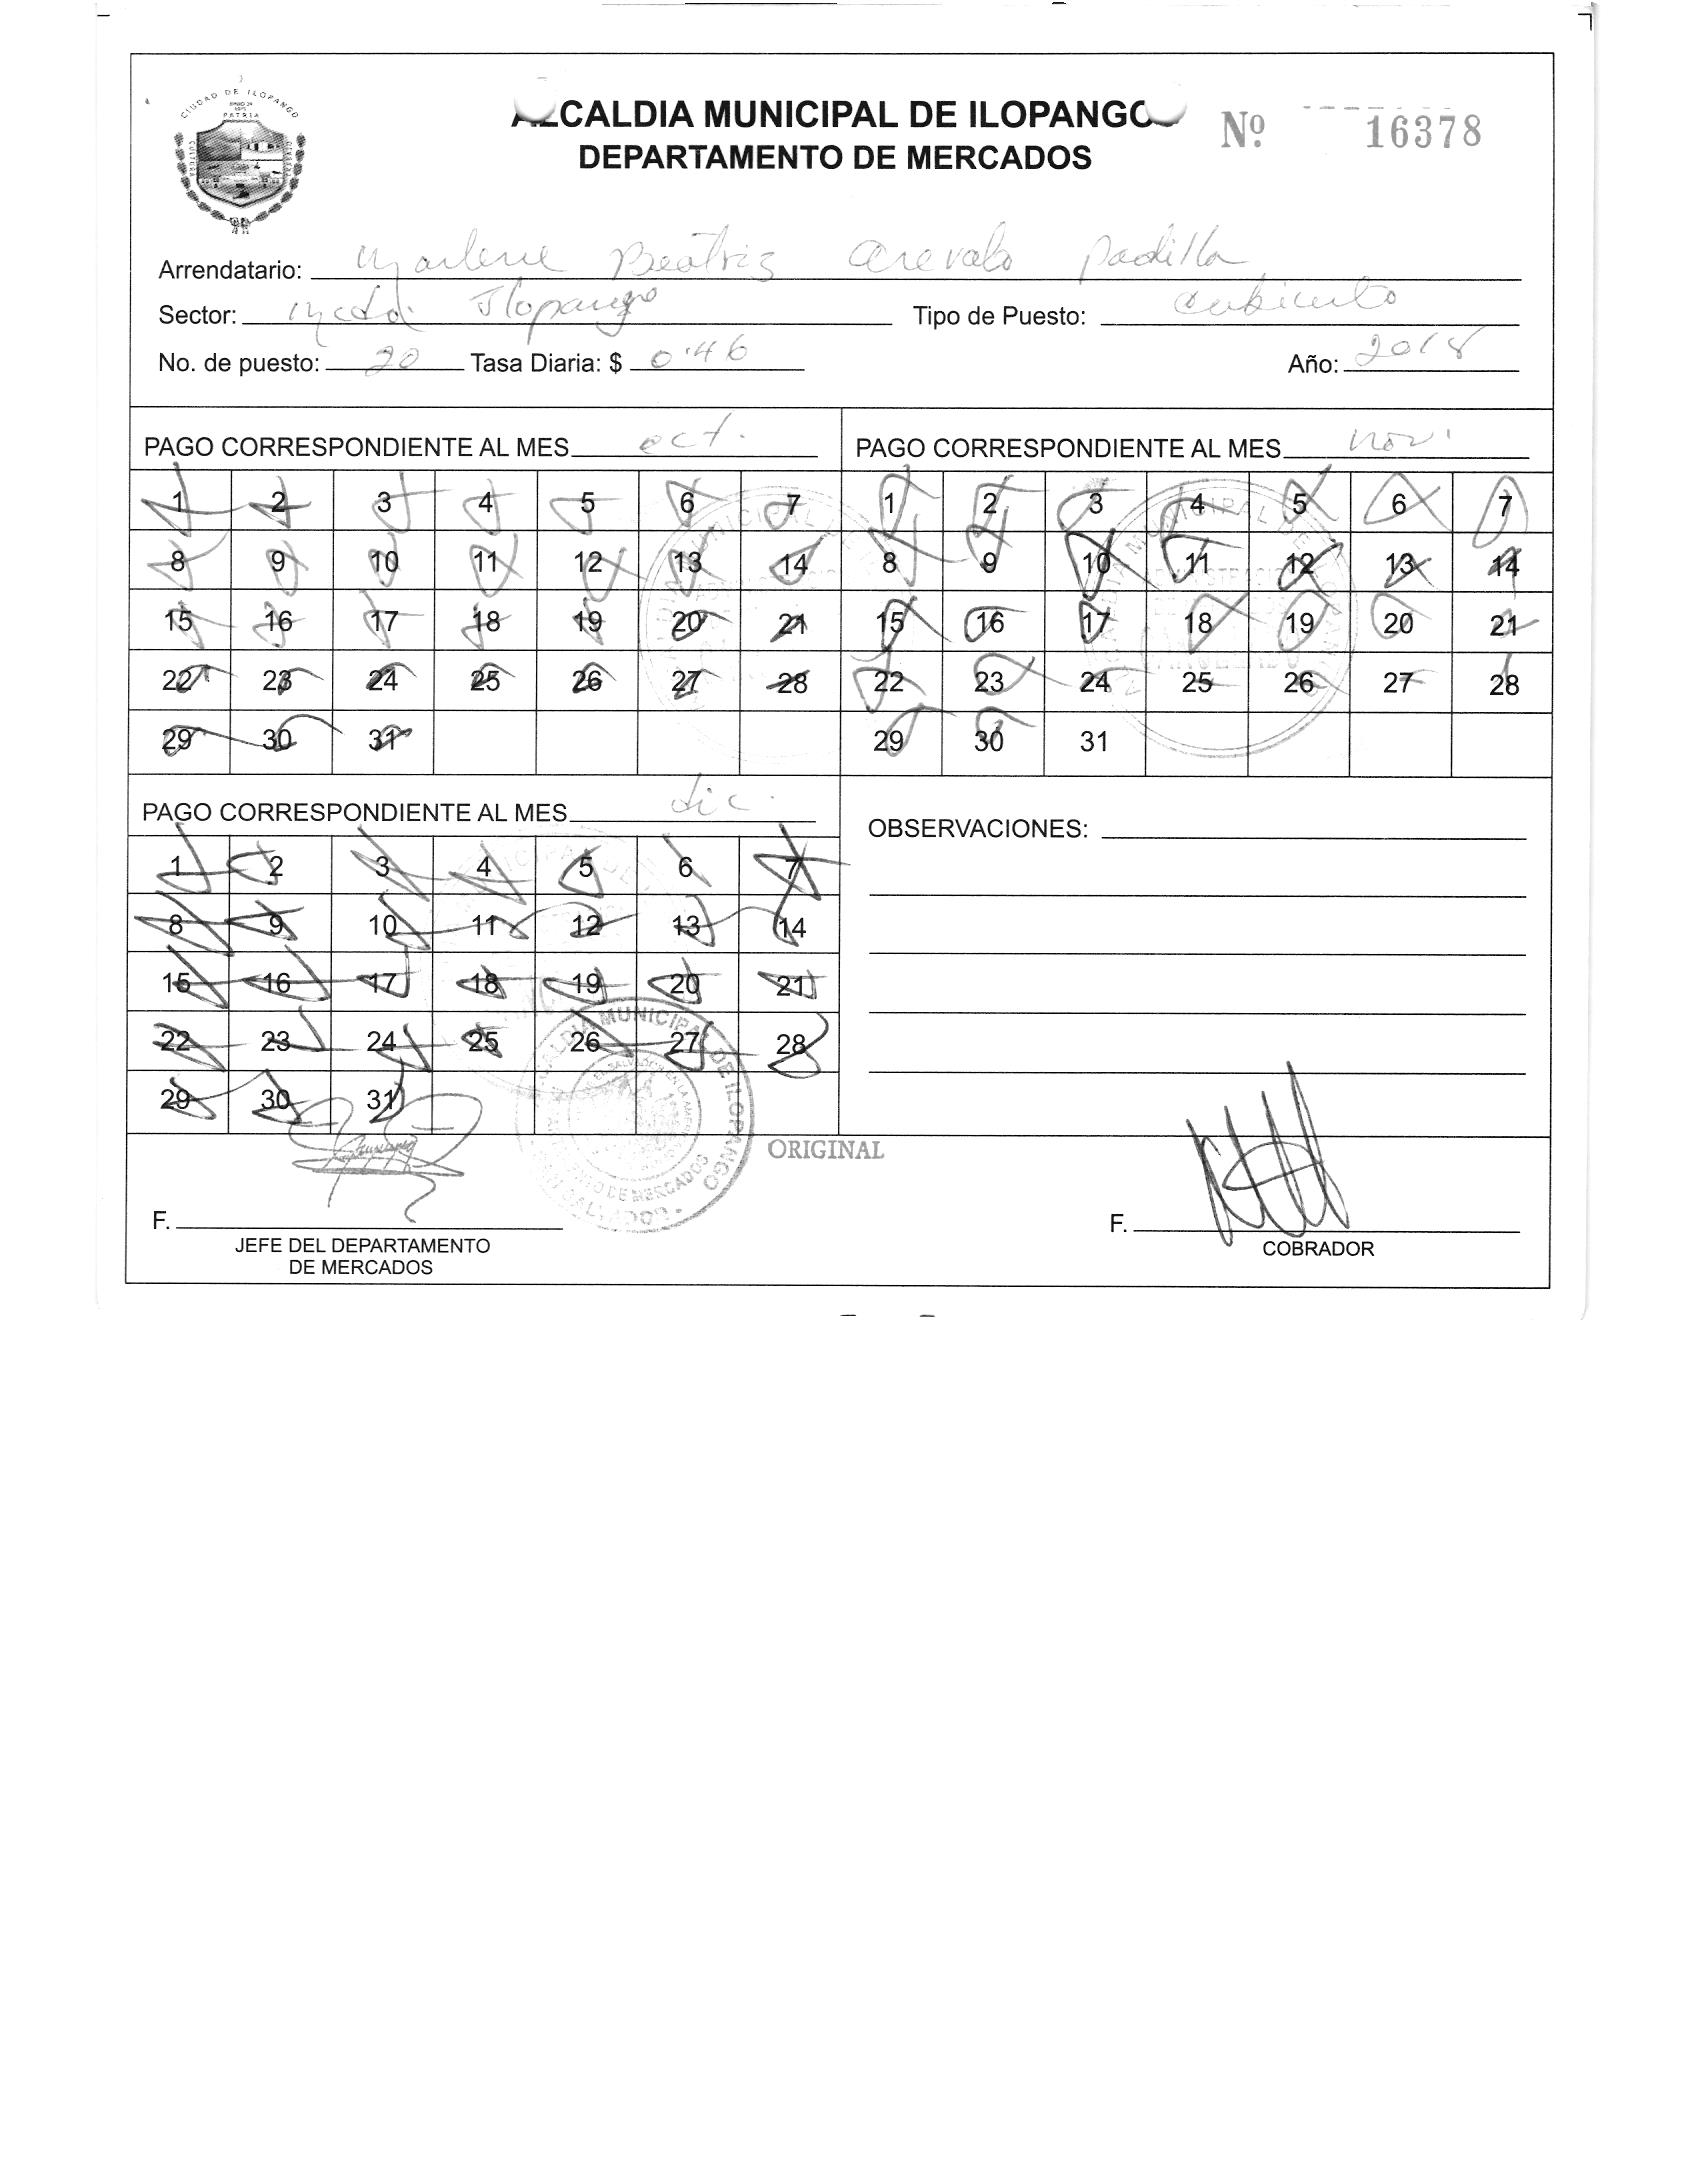 CIUDAD DE ILOPANGO
PATRIA
ALCALDIA MUNICIPAL DE ILOPANGO
DEPARTAMENTO DE MERCADOS
Nº 16378
Arrendatario: Marlene Beatriz Arevalo Padilla
Sector: Mcdo. Ilopango Tipo de Puesto: cubiculo
No. de puesto: 20 Tasa Diaria: $ 0.46 Año: 2018
PAGO CORRESPONDIENTE AL MES oct.
1 2 3 4 5 6 7
8 9 10 11 12 13 14
15 16 17 18 19 20 21
22 23 24 25 26 27 28
29 30 31
PAGO CORRESPONDIENTE AL MES nov.
1 2 3 4 5 6 7
8 9 10 11 12 13 14
15 16 17 18 19 20 21
22 23 24 25 26 27 28
29 30 31
PAGO CORRESPONDIENTE AL MES dic.
1 2 3 4 5 6 7
8 9 10 11 12 13 14
15 16 17 18 19 20 21
22 23 24 25 26 27 28
29 30 31
OBSERVACIONES:
ALCALDIA MUNICIPAL DE ILOPANGO
DE MERCADOS
ORIGINAL
F.
JEFE DEL DEPARTAMENTO
DE MERCADOS
F.
COBRADOR